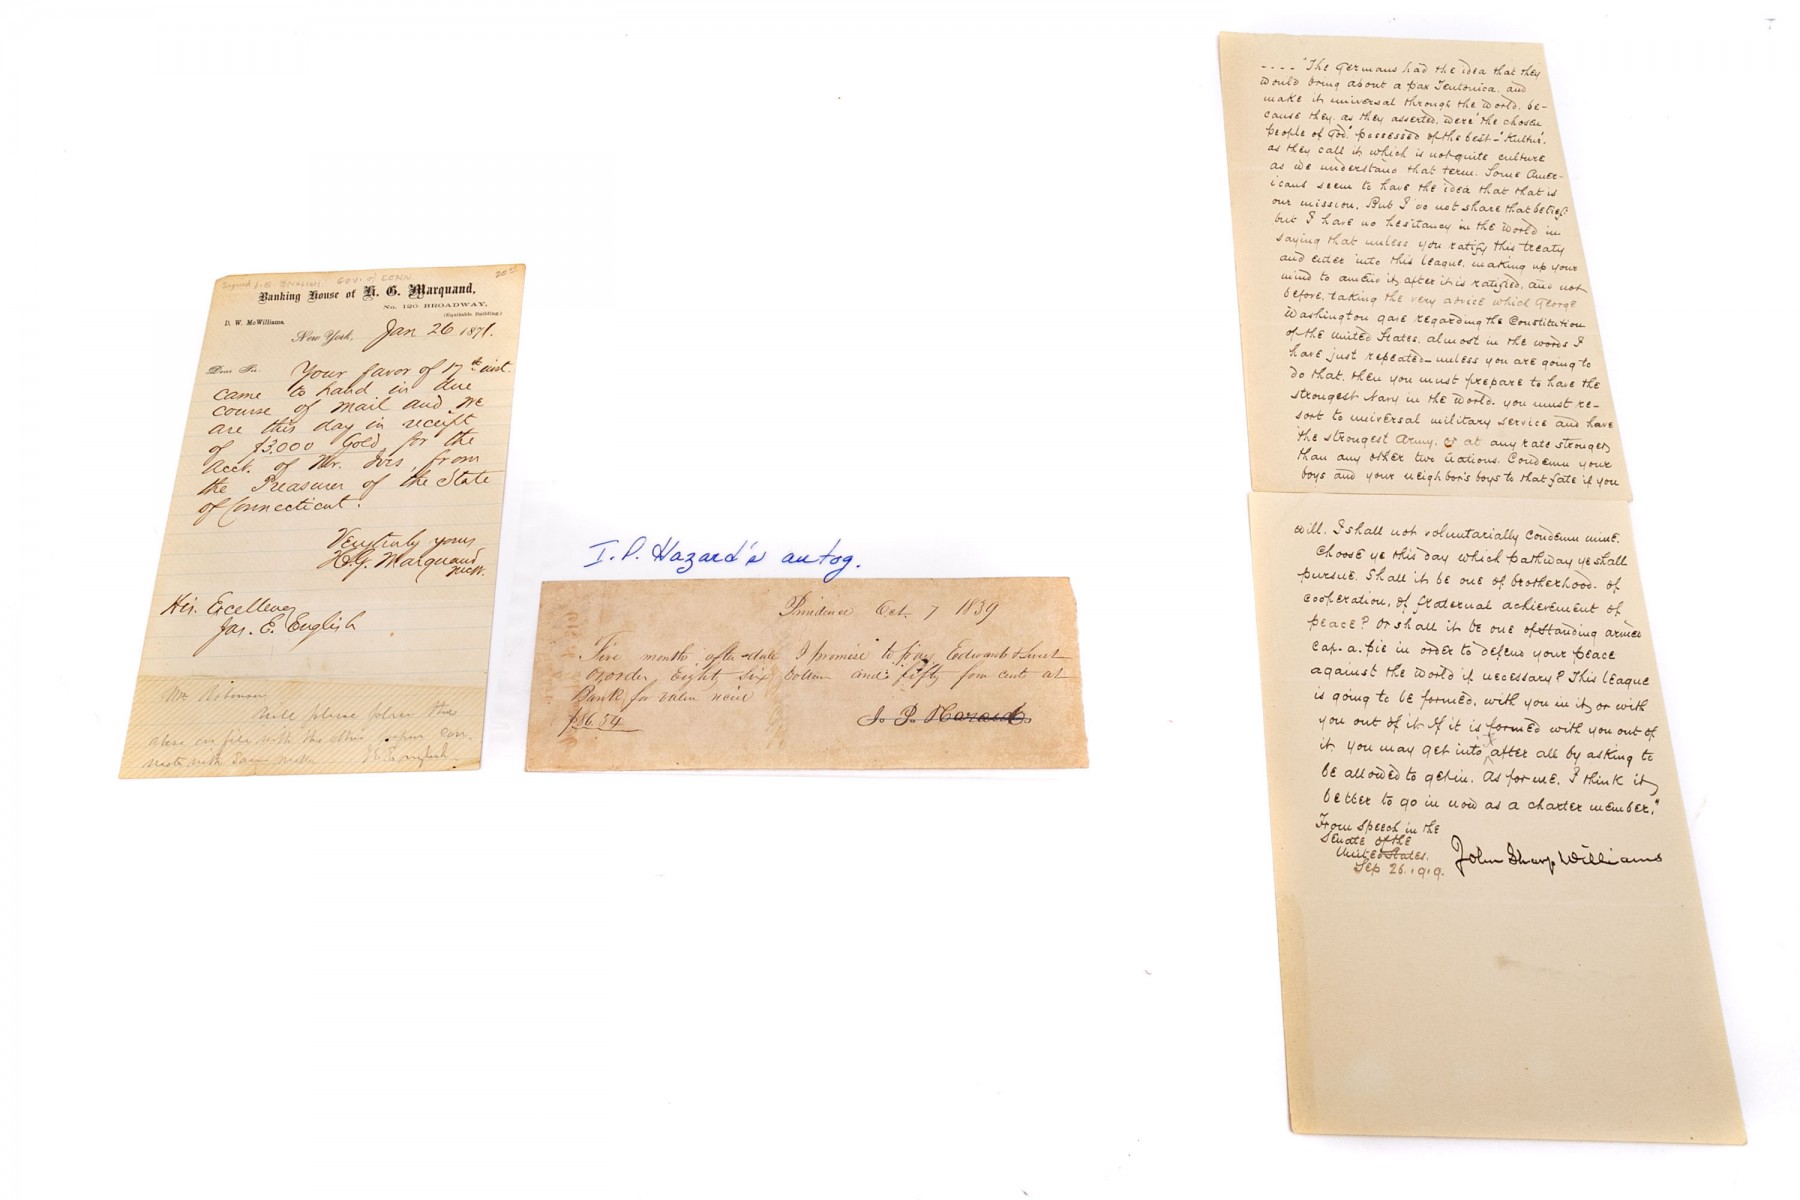 Signed J. E. English Gov. of Conn
20
Banking House of H. G. Marquand,
No. 120 BROADWAY,
(Equitable Building.)
D. W. McWilliams.
New York, Jan 26 1871.
Dear Sir. Your favor of 17th inst.
came to hand in due
course of mail and we
are this day in receipt
of $3.000 Gold for the
Acct. of Mr. Ives, from
the Treasurer of the State
of Connecticut.
Very truly yours
H. G. Marquand
His. Excellency
Jas. E. English
Mr Robinson
Will please place this
also on file with the other papers
I. P. Hazard's autog.
Providence Oct. 7 1839
Five months after date I promise to pay Edward
or order, Eighty six dollars and fifty four cents at
Bank, for value
$86.54
I. P. Hazard
.... "The Germans had the idea that they
would bring about a pax Teutonica, and
make it universal through the world, be-
cause they, as they asserted, were "the chosen
people of God", possessed of the best - "Kultur",
as they call it, which is not quite culture
as we understand that term. Some Amer-
icans seem to have the idea that that is
our mission, But I do not share that belief
but I have no hesitancy in the world in
saying that unless you ratify this treaty
and enter into this league, making up your
mind to amend it, after it is ratified, and not
before, taking the very advice which George
Washington gave regarding the Constitution
of the United States, almost in the words I
have just repeated – unless you are going to
do that, then you must prepare to have the
strongest Navy in the world, you must re-
sort to universal military service and have
the strongest Army, or at any rate stronger,
than any other two nations. Condemn your
boys and your neighbor's boys to that fate if you
will. I shall not voluntarially condemn mine.
Choose ye this day which pathway ye shall
pursue. Shall it be one of brotherhood, of
cooperation, of fraternal achievement of
peace? Or shall it be one of standing armed
cap-a-pie in order to defend your peace
against the world if necessary? This league
is going to be formed, with you in it, or with
you out of it. If it is formed with you out of
it you may get into after all by asking to
be allowed to get in. As for me, I think it,
better to go in now as a charter member."
From speech in the
Senate of the
United States.
Sep 26. 1919.
John Sharp Williams